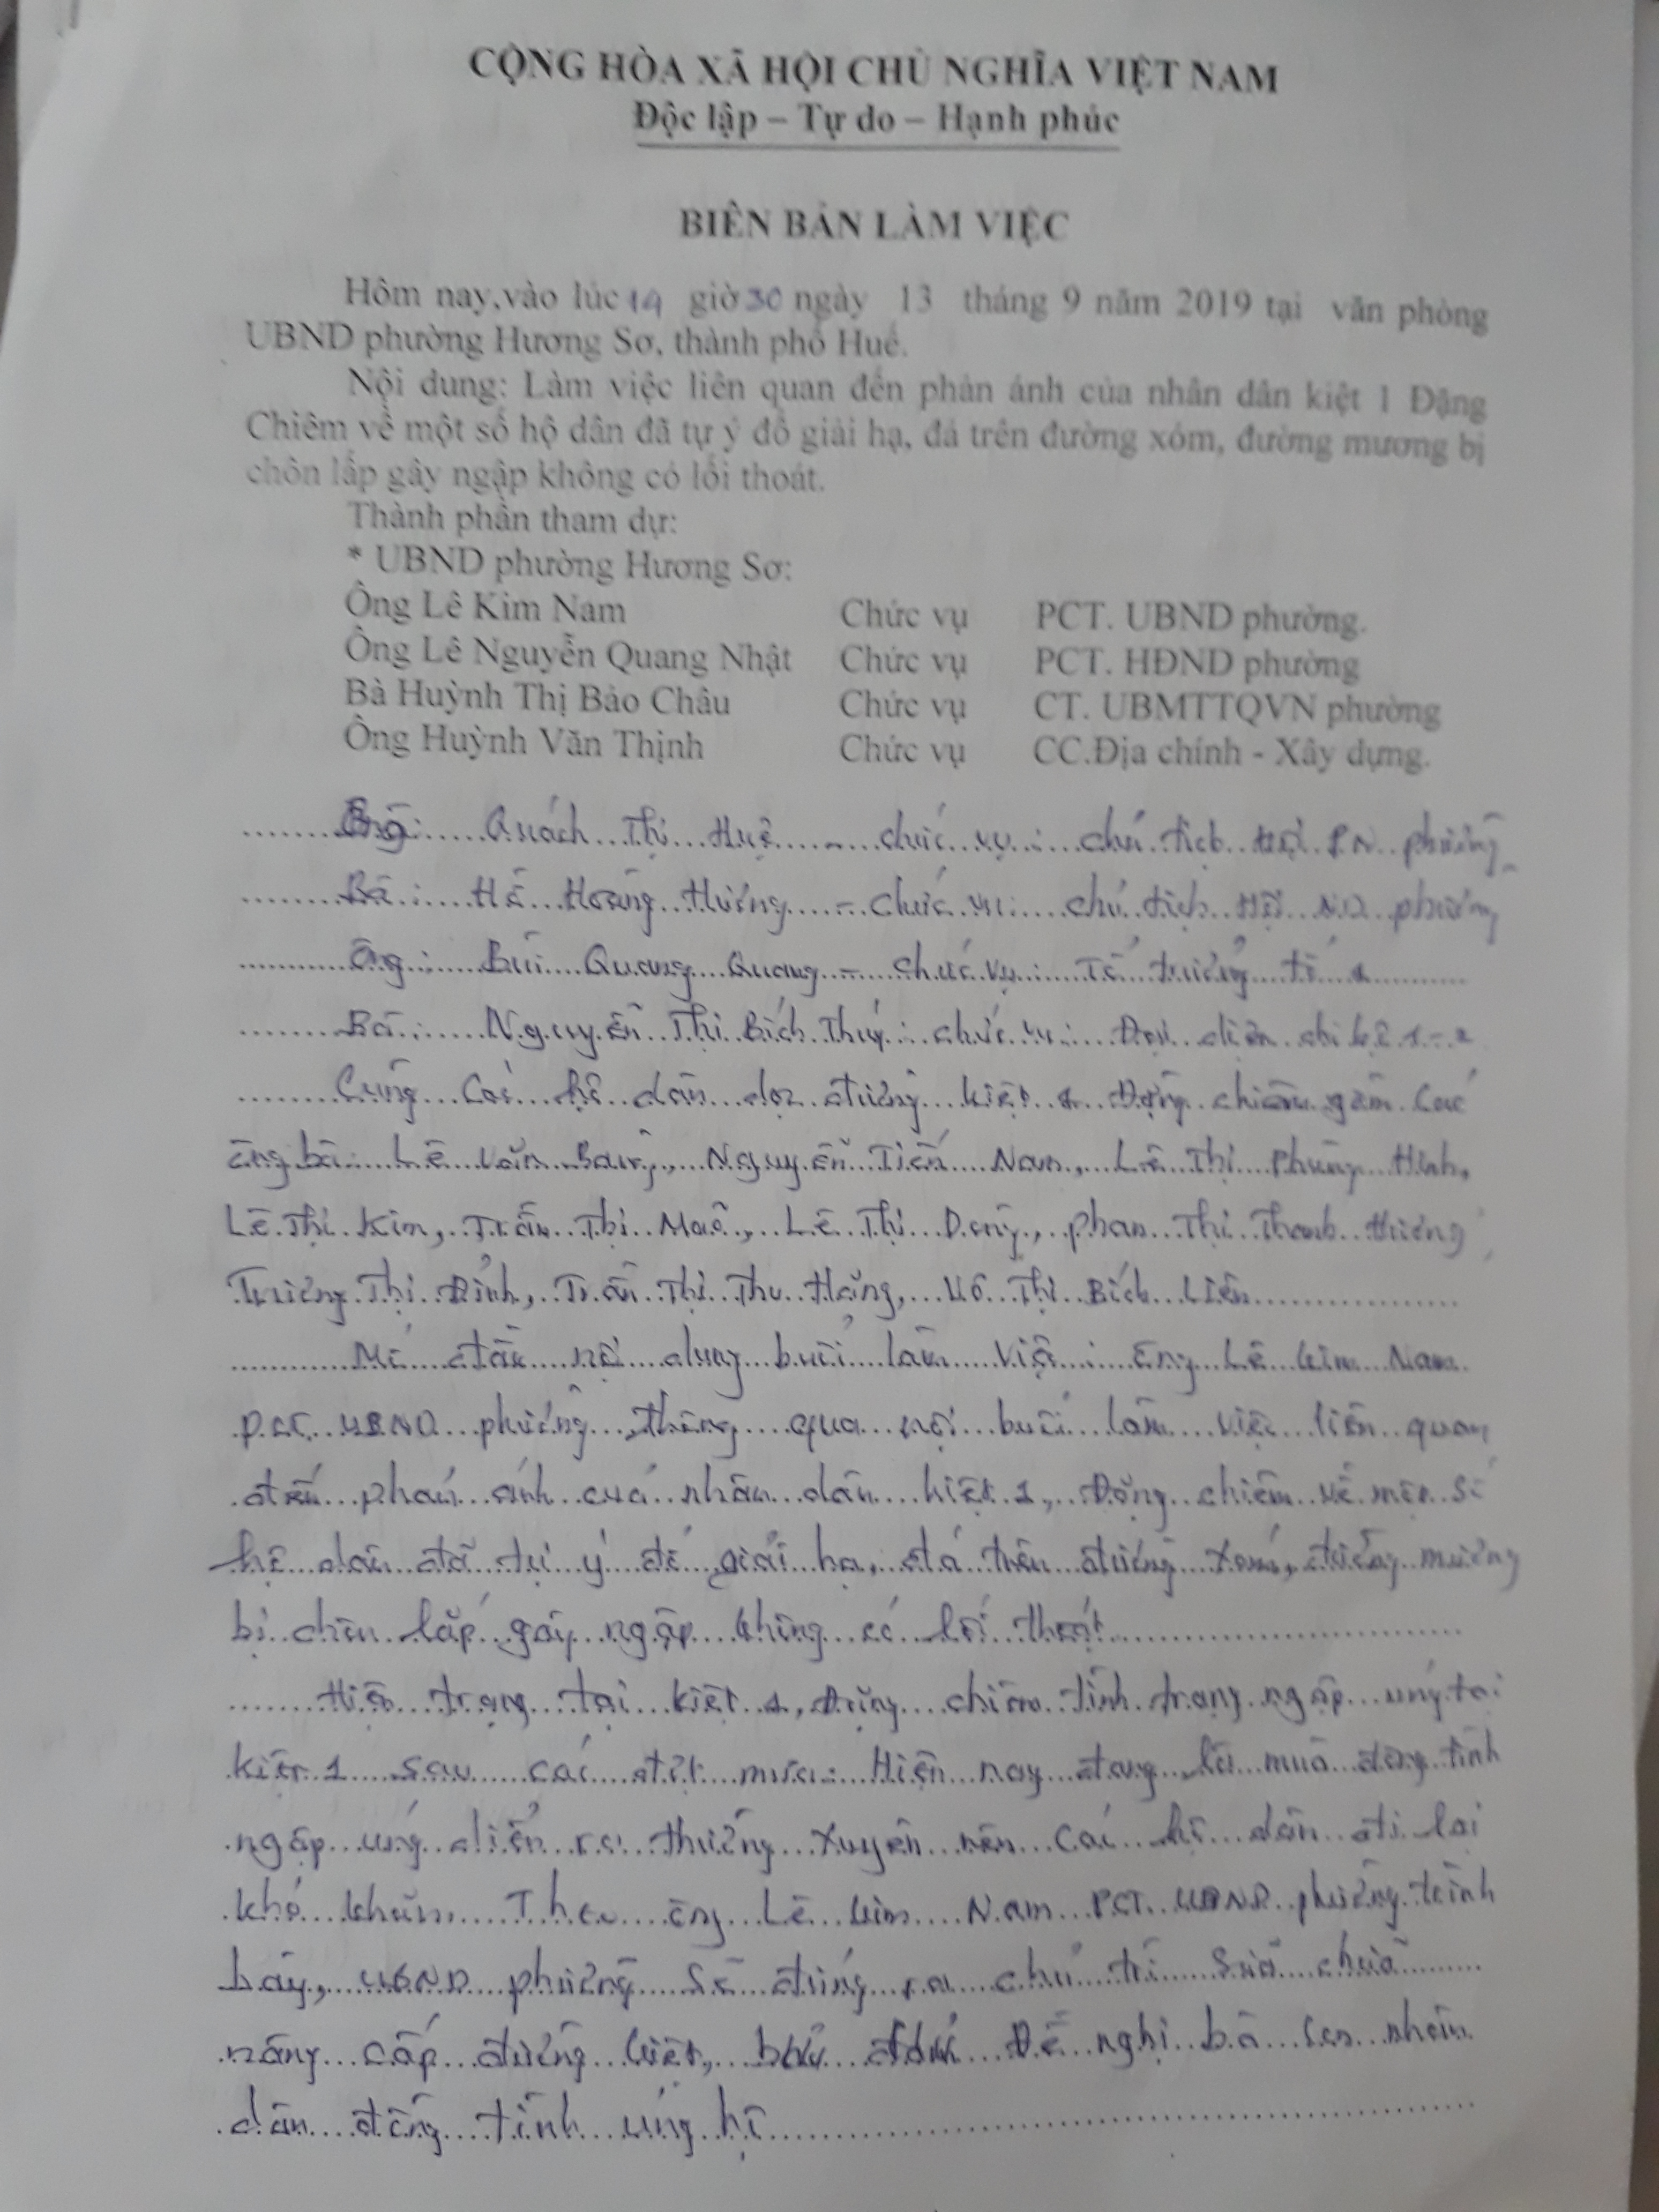 CỘNG HÒA XÃ HỘI CHỦ NGHĨA VIỆT NAM
Độc lập – Tự do – Hạnh phúc
BIÊN BẢN LÀM VIỆC
Hôm nay,vào lúc 14 giờ 30 ngày 13 tháng 9 năm 2019 tại văn phòng
UBND phường Hương Sơ, thành phố Huế.
Nội dung: Làm việc liên quan đến phản ánh của nhân dân kiệt 1 Đặng
Chiêm về một số hộ dân đã tự ý đổ giải hạ, đá trên đường xóm, đường mương bị
chôn lấp gây ngập không có lối thoát.
Thành phần tham dự:
* UBND phường Hương Sơ:
Ông Lê Kim Nam Chức vụ PCT. UBND phường.
Ông Lê Nguyễn Quang Nhật Chức vụ PCT. HĐND phường
Bà Huỳnh Thị Bảo Châu Chức vụ CT. UBMTTQVN phường
Ông Huỳnh Văn Thịnh Chức vụ CC.Địa chính - Xây dựng.
Bà: Quách Thị Huệ - chức vụ: chủ tịch Hội PN phường
Bà: Hồ Hoàng Hương - chức vụ: chủ tịch Hội ND phường
Ông: Bùi Quang Quang - chức vụ: Tổ trưởng tổ 1
Bà: Nguyễn Thị Bích Thủy: chức vụ: Đại diện chi bộ 1-2
Cùng các hộ dân dọc đường kiệt 1 Đặng chiêm gồm các
ông bà: Lê Văn Nguyễn Tiến Nam, Lê Thị Phùng
Lê Thị Kim, Trần Thị Lê Thị Phan Thị Thanh Hương
Trương Thị Trần Thị Thu Hằng, Võ Thị Bích Liên
Mở đầu nội dung buổi làm việc: Ông Lê Kim Nam
PCT. UBND phường, thông qua nội buổi làm việc liên quan
đến phản ánh của nhân dân kiệt 1, Đặng chiêm về một số
hộ dân đã tự ý đổ giải hạ, đá trên đường xóm, đường mương
bị chôn lấp gây ngập không có lối thoát
Hiện trạng tại kiệt 1, Đặng chiêm tình trạng ngập úng tại
kiệt 1 sau các đợt mưa: Hiện nay đang là mùa đông tình
ngập úng diễn ra thường xuyên nên các hộ dân đi lại
khó khăn. Theo ông Lê Kim Nam PCT. UBND phường trình
bày, UBND phường sẽ đứng ra chủ trì sửa chữa
nâng cấp đường kiệt, Đề nghị bà con nhân
dân đồng tình ủng hộ